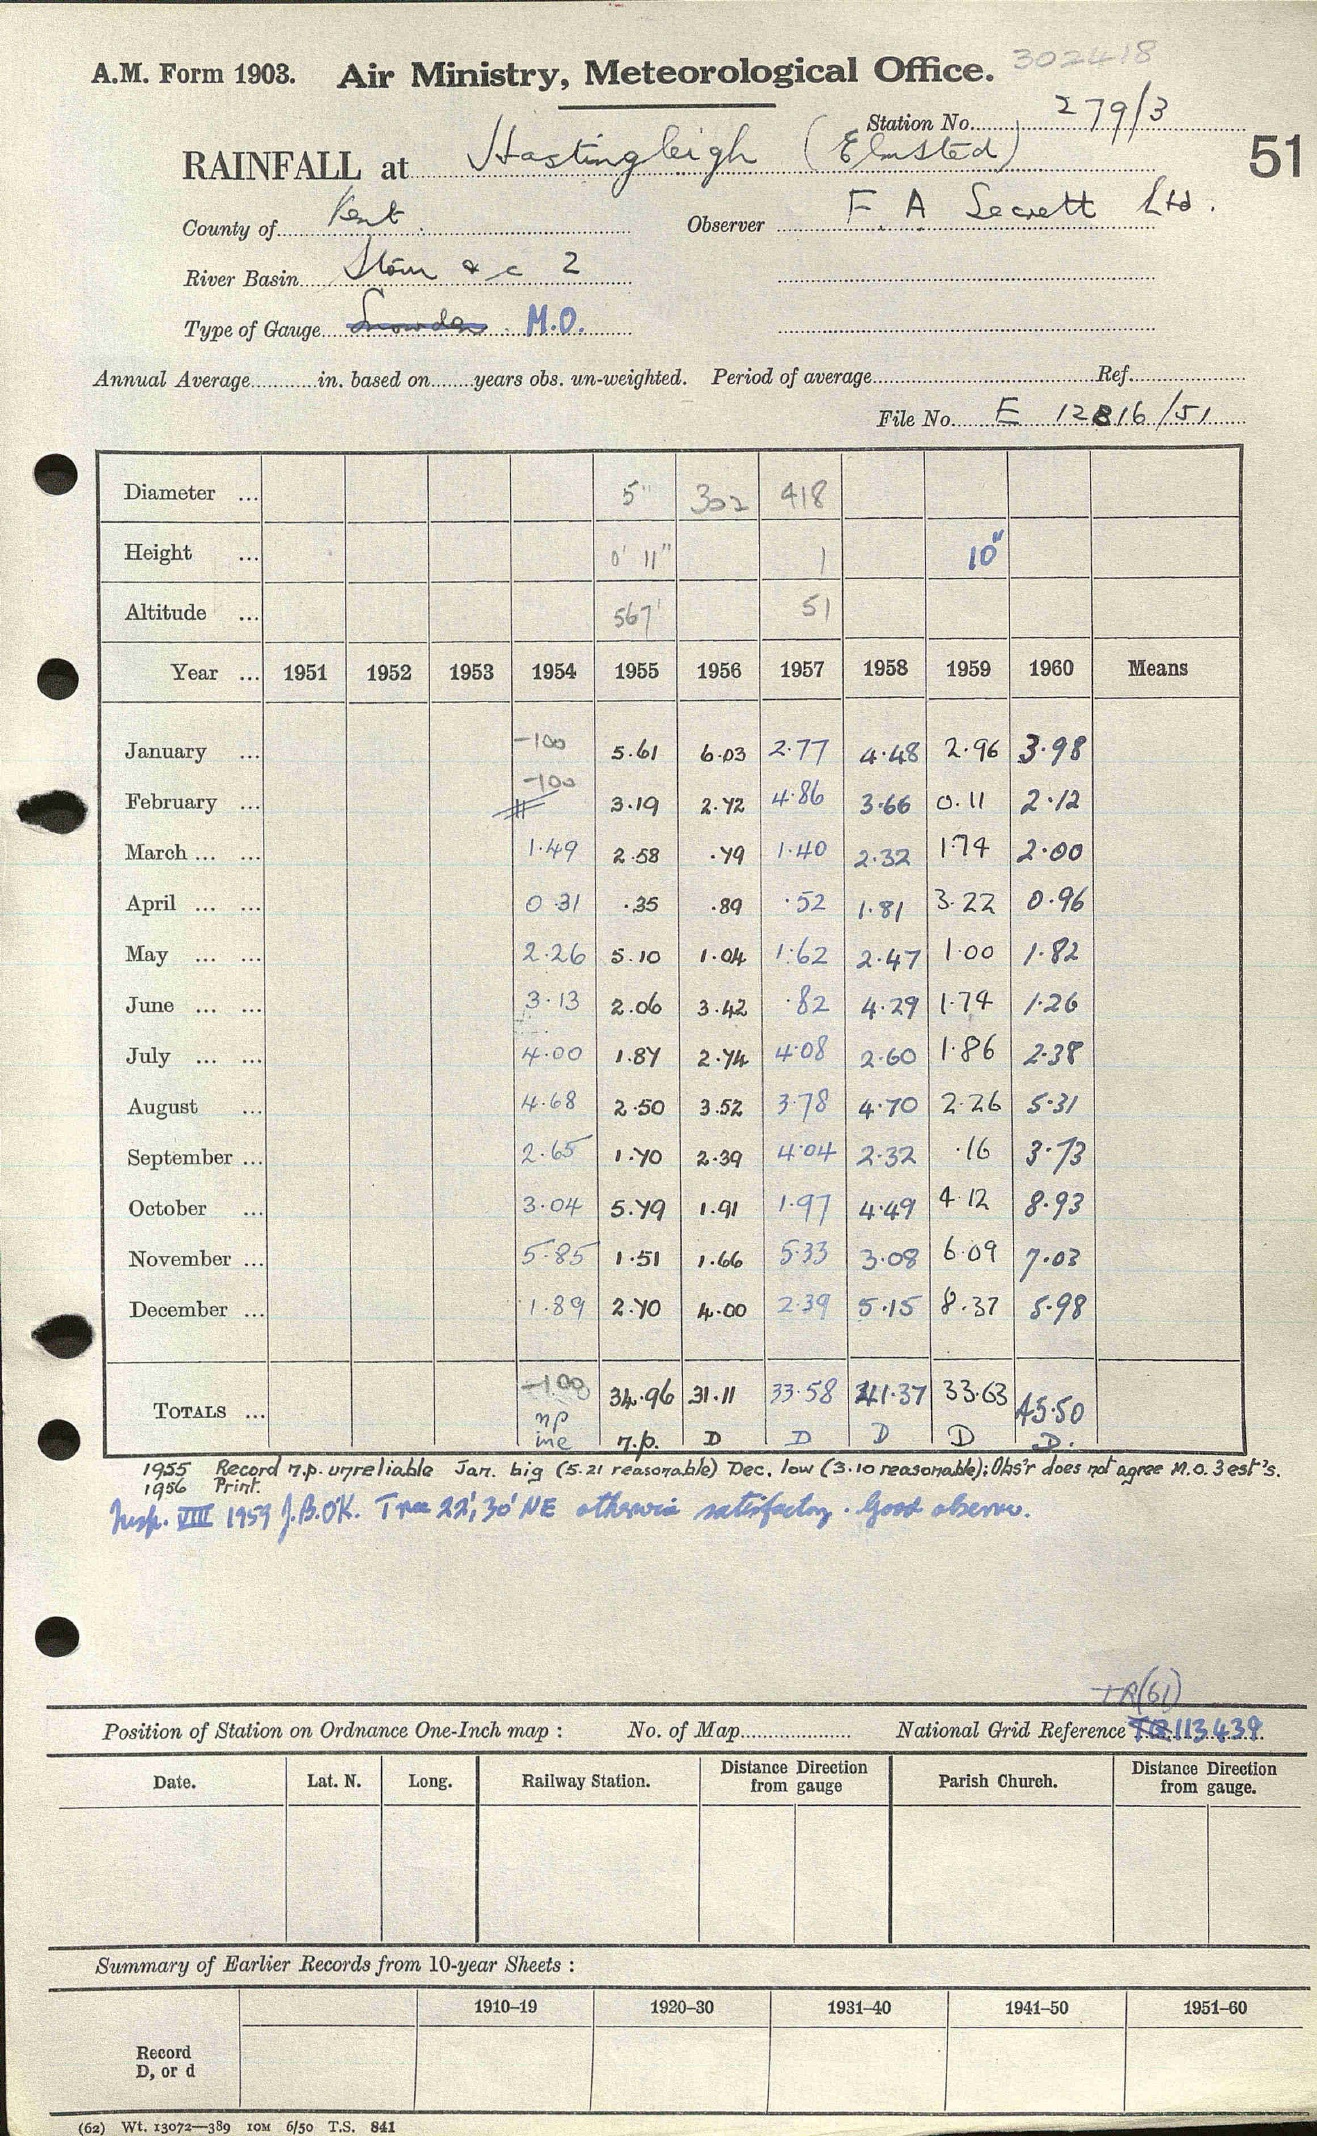 302418
A.M. Form 1903. Air Ministry, Meteorological Office.
Station No. 279/3
RAINFALL at Hastingleigh (Elmsted) 51
County of Kent. Observer F. A. Secrett Ltd.
River Basin Stour & c 2
Type of Gauge Snowdon. M.O.
Annual Average in. based on years obs. un-weighted. Period of average Ref.
File No. E 12816/51
Diameter ... 5" 302 418
Height ... 0' 11" 1 10"
Altitude ... 567' 51
Year ... 1951 1952 1953 1954 1955 1956 1957 1958 1959 1960 Means
January ... -100 5.61 6.03 2.77 4.48 2.96 3.98
February ... -100 3.19 2.72 4.86 3.66 0.11 2.12
March ... ... 1.49 2.58 .79 1.40 2.32 1.74 2.00
April ... ... 0.31 .35 .89 .52 1.81 3.22 0.96
May ... ... 2.26 5.10 1.04 1.62 2.47 1.00 1.82
June ... ... 3.13 2.06 3.42 .82 4.29 1.74 1.26
July ... ... 4.00 1.87 2.74 4.08 2.60 1.86 2.38
August ... 4.68 2.50 3.52 3.78 4.70 2.26 5.31
September ... 2.65 1.70 2.39 4.04 2.32 .16 3.73
October ... 3.04 5.79 1.91 1.97 4.49 4.12 8.93
November ... 5.85 1.51 1.66 5.33 3.08 6.09 7.03
December ... 1.89 2.70 4.00 2.39 5.15 8.37 5.98
TOTALS ... -100 34.96 31.11 33.58 41.37 33.63 45.50
np inc n.p. D D D D D.
1955 Record n.p. unreliable Jan. big (5.21 reasonable) Dec. low (3.10 reasonable); Obs'r does not agree M.O. 3 est's.
1956 Print.
Insp. VIII 1959 J.B.O'K. Tree 22', 30' NE otherwise satisfactory. Good observer.
TR(61)
Position of Station on Ordnance One-Inch map : No. of Map National Grid Reference TR 113439.
Date. Lat. N. Long. Railway Station. Distance Direction from gauge Parish Church. Distance Direction from gauge.
Summary of Earlier Records from 10-year Sheets :
1910–19 1920–30 1931–40 1941–50 1951–60
Record
D, or d
(62) Wt. 13072—389 10M 6/50 T.S. 841